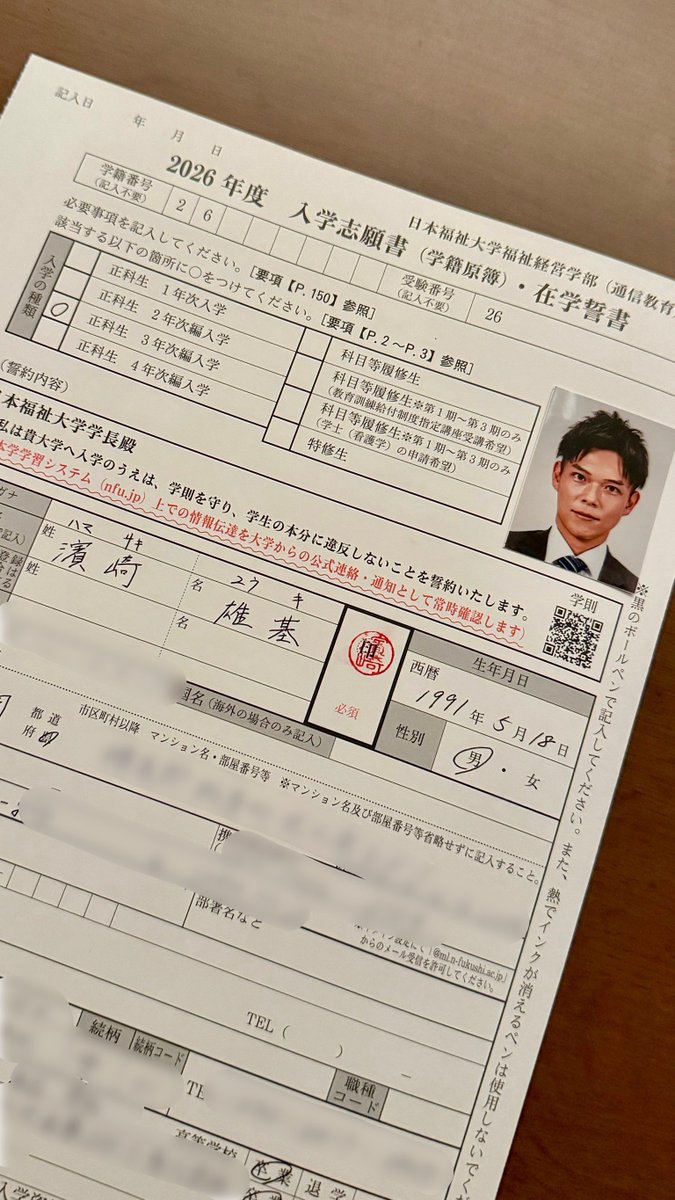 記入日 年 月 日
日本福祉大学福祉経営学部（通信教育
2026年度 入学志願書（学籍原簿）・在学誓書
学籍番号（記入不要） 2 6
受験番号（記入不要） 26
必要事項を記入してください。［要項【P.150】参照］
該当する以下の箇所に○をつけてください。［要項【P.2～P.3】参照］
入学の種類
正科生 1年次入学
正科生 2年次編入学
○ 正科生 3年次編入学
正科生 4年次編入学
科目等履修生
科目等履修生※第1期～第3期のみ
（教育訓練給付制度指定講座受講希望）
科目等履修生※第1期～第3期のみ
（学士（看護学）の申請希望）
特修生
（誓約内容）
日本福祉大学学長殿
私は貴大学へ入学のうえは、学則を守り、学生の本分に違反しないことを誓約いたします。
本学学習システム（nfu.jp）上での情報伝達を大学からの公式連絡・通知として常時確認します）
学則
ガナ
姓 ハマ サキ
名 ユウ キ
濱崎
雄基
姓
名
印
濱崎
必須
生年月日
西暦
1991年5月18日
性別
男・女
国名（海外の場合のみ記入）
都道
府
市区町村以降 マンション名・部屋番号等 ※マンション名及び部屋番号等省略せずに記入すること。
携
部署名など
「@ml.n-fukushi.ac.jp」
からのメール受信を許可してください。
TEL（ ） －
続柄
続柄コード
職種コード
高等学校
卒業
退学
入学資
※黒のボールペンで記入してください。また、熱でインクが消えるペンは使用しないでく